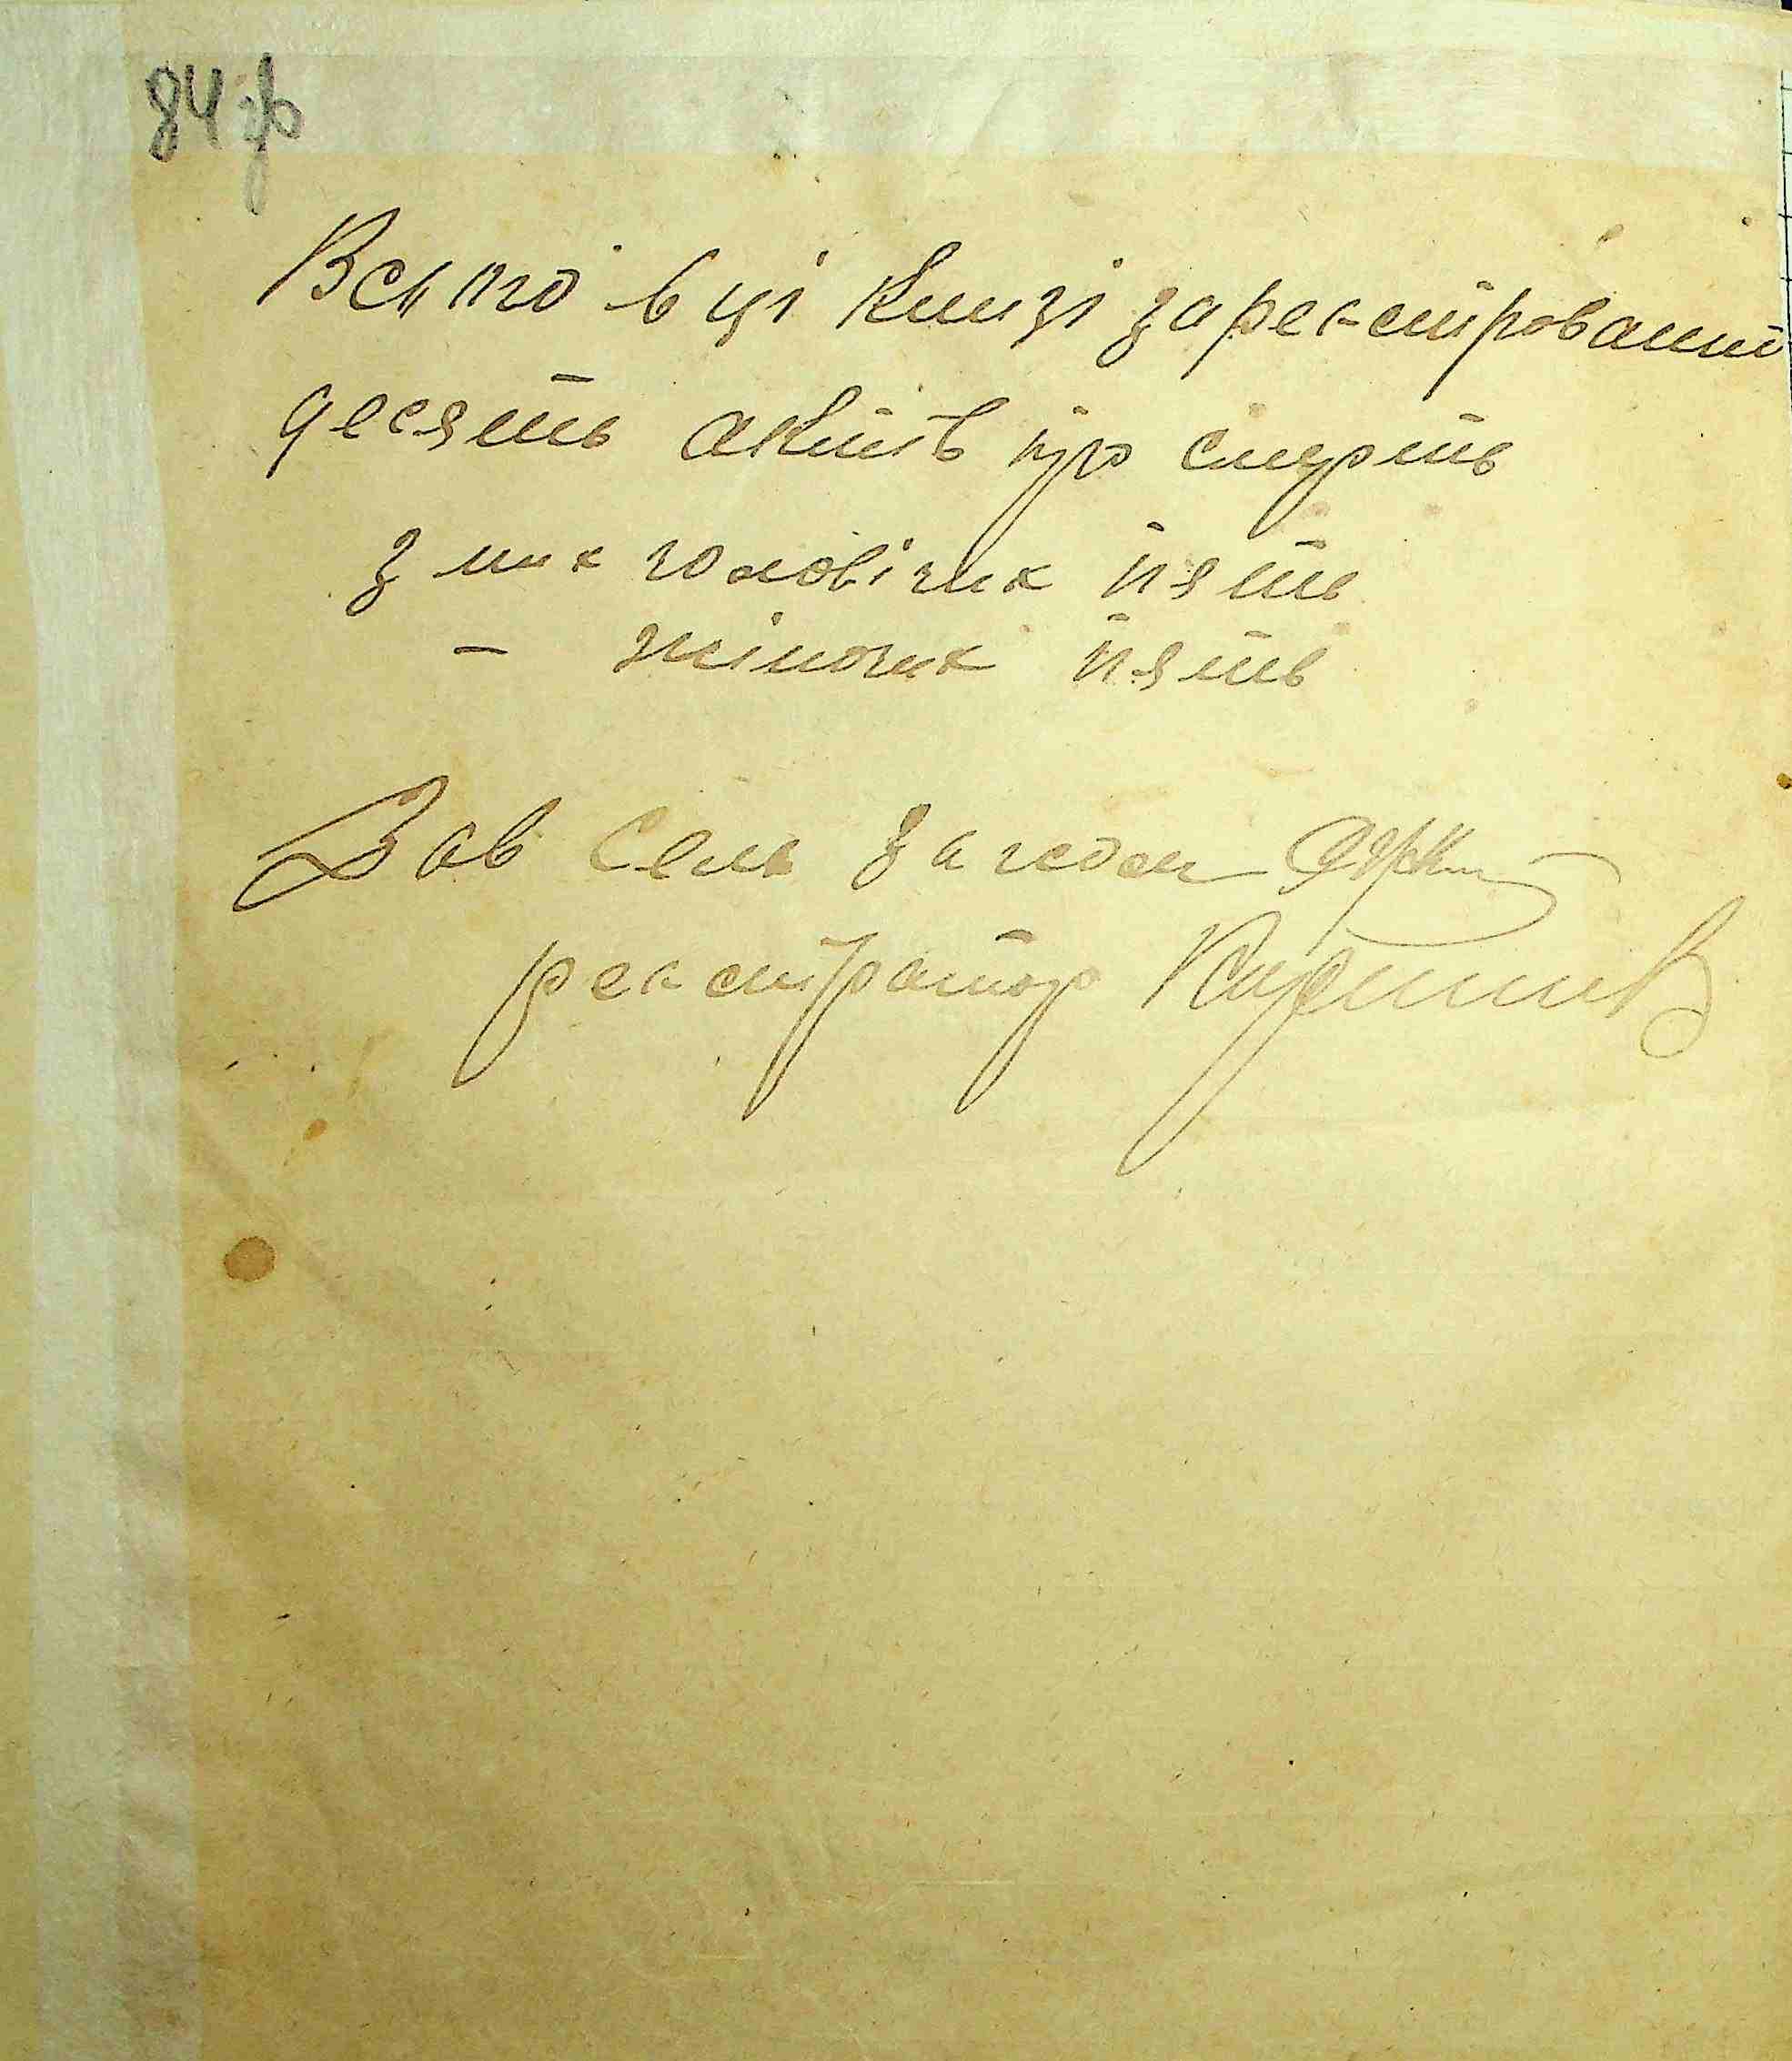 84
Всього в ці книзі зареєстровано
десять актів про смерть
з них чоловічих пять
— жіночих пять
Зав Сель загсом
реєстратор